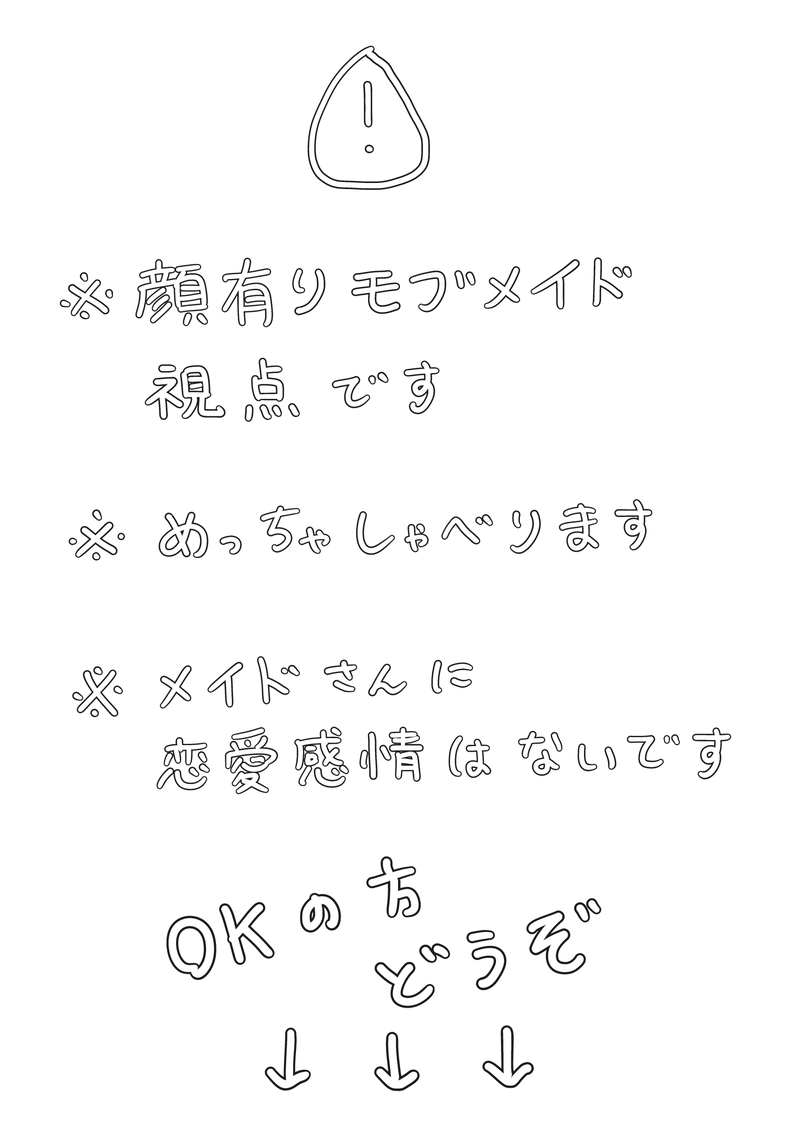 !
※ 顔有りモブメイド
視点です
※ めっちゃしゃべります
※ メイドさんに
恋愛感情はないです
OKの方
どうぞ
↓ ↓ ↓